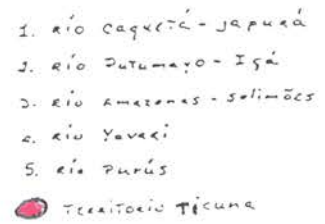 1. RÍO CAQUETÁ - JAPURÁ
2. RÍO PUTUMAYO - IÇÁ
3. RÍO AMAZONAS - SOLIMÕES
4. RÍO YAVARÍ
5. RÍO PURÚS
TERRITORIO TICUNA